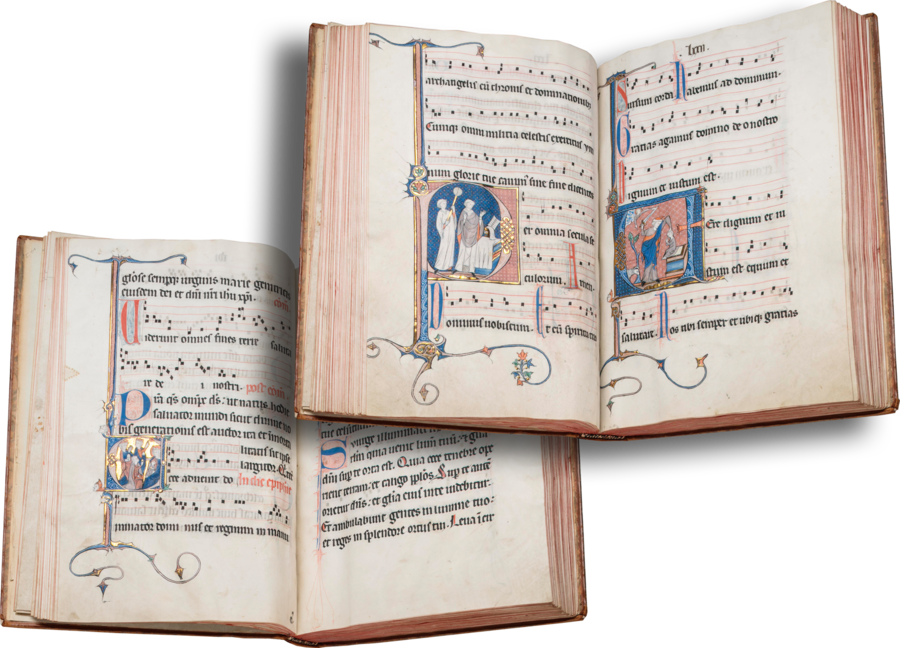 archangelis cū thronis et dominationibꝰ
Cumqꝫ omni militia celestis exercitus ym
num glorie tue canimꝰ sine fine dicentes
er omnia secula se
culorum. Amen.
Dominus uobiscum. Et cū spiritu tuo
lxii.
Sursum corda Habemus ad dominum.
Gratias agamus domino deo nostro
Dignum et iustum est.
Ere dignum et iu
stum est equum et
salutare. Nos tibi semper et ubiqꝫ gratias
gl'ose semperqꝫ uirginis marie genitricis
eiusdem dei et dn̄i nr̄i ihū xp̄i. com̄
Uiderunt omnes fines terre saluta
re dei nostri. post com̄
Pr̄a q̄s omp̄s ds̄. ut natus hodie
saluator mundi sicut diuine no
bis generationis est auctor ita et inmorta
litatis sit ipse
largitor. 
cce aduenit do In die epyphie
minator domi nus et regnum in manu
Surge illuminare
ihrl'm quia uenit lum̄ tuū. et gl'ia
dn̄i sup̄ te orta est. Quia ecce tenebre opi
rient terram. et caligo pp̄los. Sup̄ te autē
orietur dn̄s. et gl'ia eius in te uidebitur.
Et ambulabunt gentes in lumine tuo.
et reges in splendore ortus tui. Leua ī cir